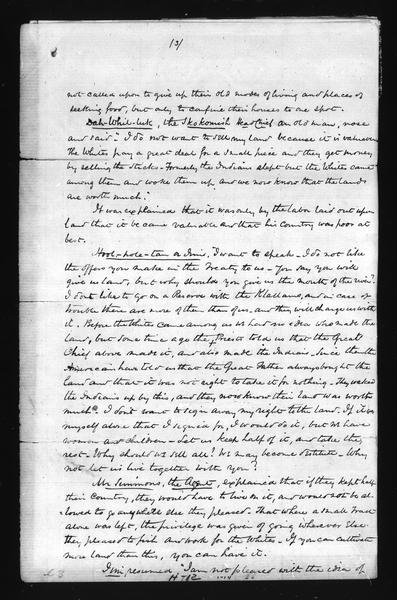 13/
not called upon to give up their old modes of living and places of
seeking food, but only to confine their houses to one spot.
Dah-Whil-luk, the Skokomish Head Chief an old man, rose
and said: "I do not want to sell my land because it is valuable.
the Whites pay a great deal for a small piece and they get money
by selling the sticks - Formerly the Indians slept but the Whites came
among them and woke them up and we now know that the lands
are worth much."
It was explained that it was only by the labor laid out upon
land that it became valuable and that his Country was poor at
best.
Hool-hole-tan or Jim, "I want to speak - I do not like
the offer you make in the Treaty to us - You say you will
give us land, but why should you give us the mouth of the river?
I don't like to go on a Reserve with the Klallams, and in case of
trouble there are more of them than of us, and they will charge us with
it. Before the Whites came among us we had no idea who made the
land, but some time ago the Priests told us that the Great
Chief above made it, and also made the Indians. Since then the
Americans have told us that the Great Father always bought the
land and that it was not right to take it for nothing. They waked
the Indians up by this, and they now know their land was worth
much. I don't want to sign away my right to the land. If it was
myself alone that I signed for, I would do it, but we have
women and children - Let us keep half of it, and take the
rest - Why should we sell all? We may become destitute - Why
not let us live together with you?
Mr Simmons, the Agent, explained that if they kept half
their Country, they would have to live on it, and would not be al-
lowed to go anywhere else they pleased. That where a small tract
alone was left, the privilege was given of going wherever else
they pleased to fish and work for the Whites - If you can cultivate
more land than this, you can have it.
Jim resumed. "I am not pleased with the idea of
H-12